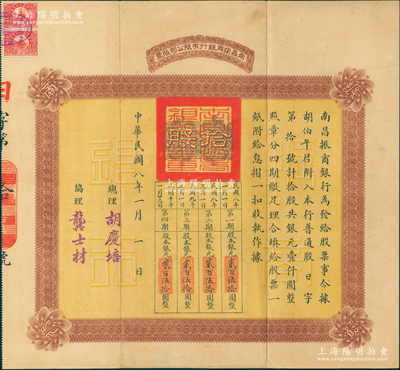 上海陽明拍賣
www.sh-yangming.com
南昌振商銀行有限公司股票
南昌振商銀行為發給股票事今據
胡伯午君附入本行普通股日字
第拾號計拾股共銀元壹仟圓整
照章分四期繳足理合填給股票一
紙附給息摺一扣收執作據
第一期股本銀元貳百伍拾圓整
第二期股本銀元貳百伍拾圓整
第三期股本銀元貳百伍拾圓整
第四期股本銀元貳百伍拾圓整
中華民國八年一月一日
總理 胡慶培
協理 龔士材
日字第拾號
上海陽明拍賣